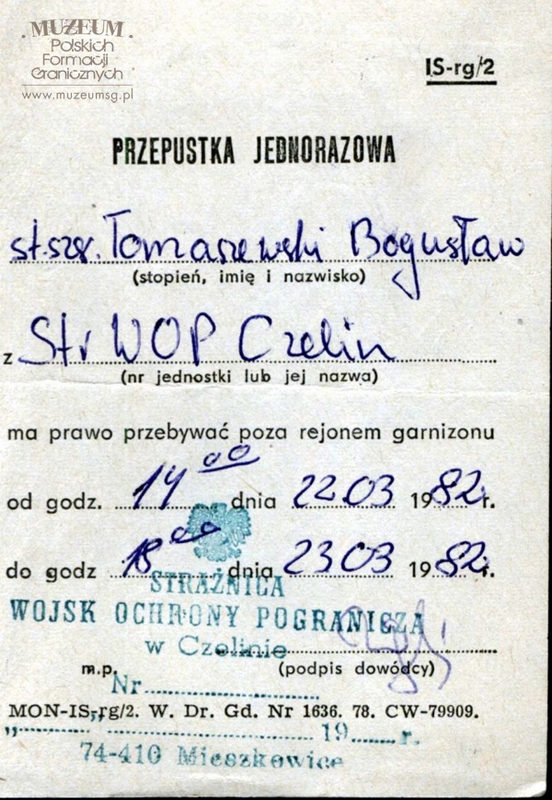 MUZEUM
Polskich
Formacji
Granicznych
www.muzeumsg.pl
IS-rg/2
PRZEPUSTKA JEDNORAZOWA
st.szr. Tomaszewski Bogusław
(stopień, imię i nazwisko)
z Str WOP Czelin
(nr jednostki lub jej nazwa)
ma prawo przebywać poza rejonem garnizonu
od godz. 14 00 dnia 22 03 1982 r.
do godz 18 00 dnia 23 03 1982 r.
STRAŻNICA
WOJSK OCHRONY POGRANICZA
w Czelinie
m.p. (podpis dowódcy)
Nr
MON-IS-rg/2. W. Dr. Gd. Nr 1636. 78. CW-79909.
19 r.
74-410 Mieszkowice